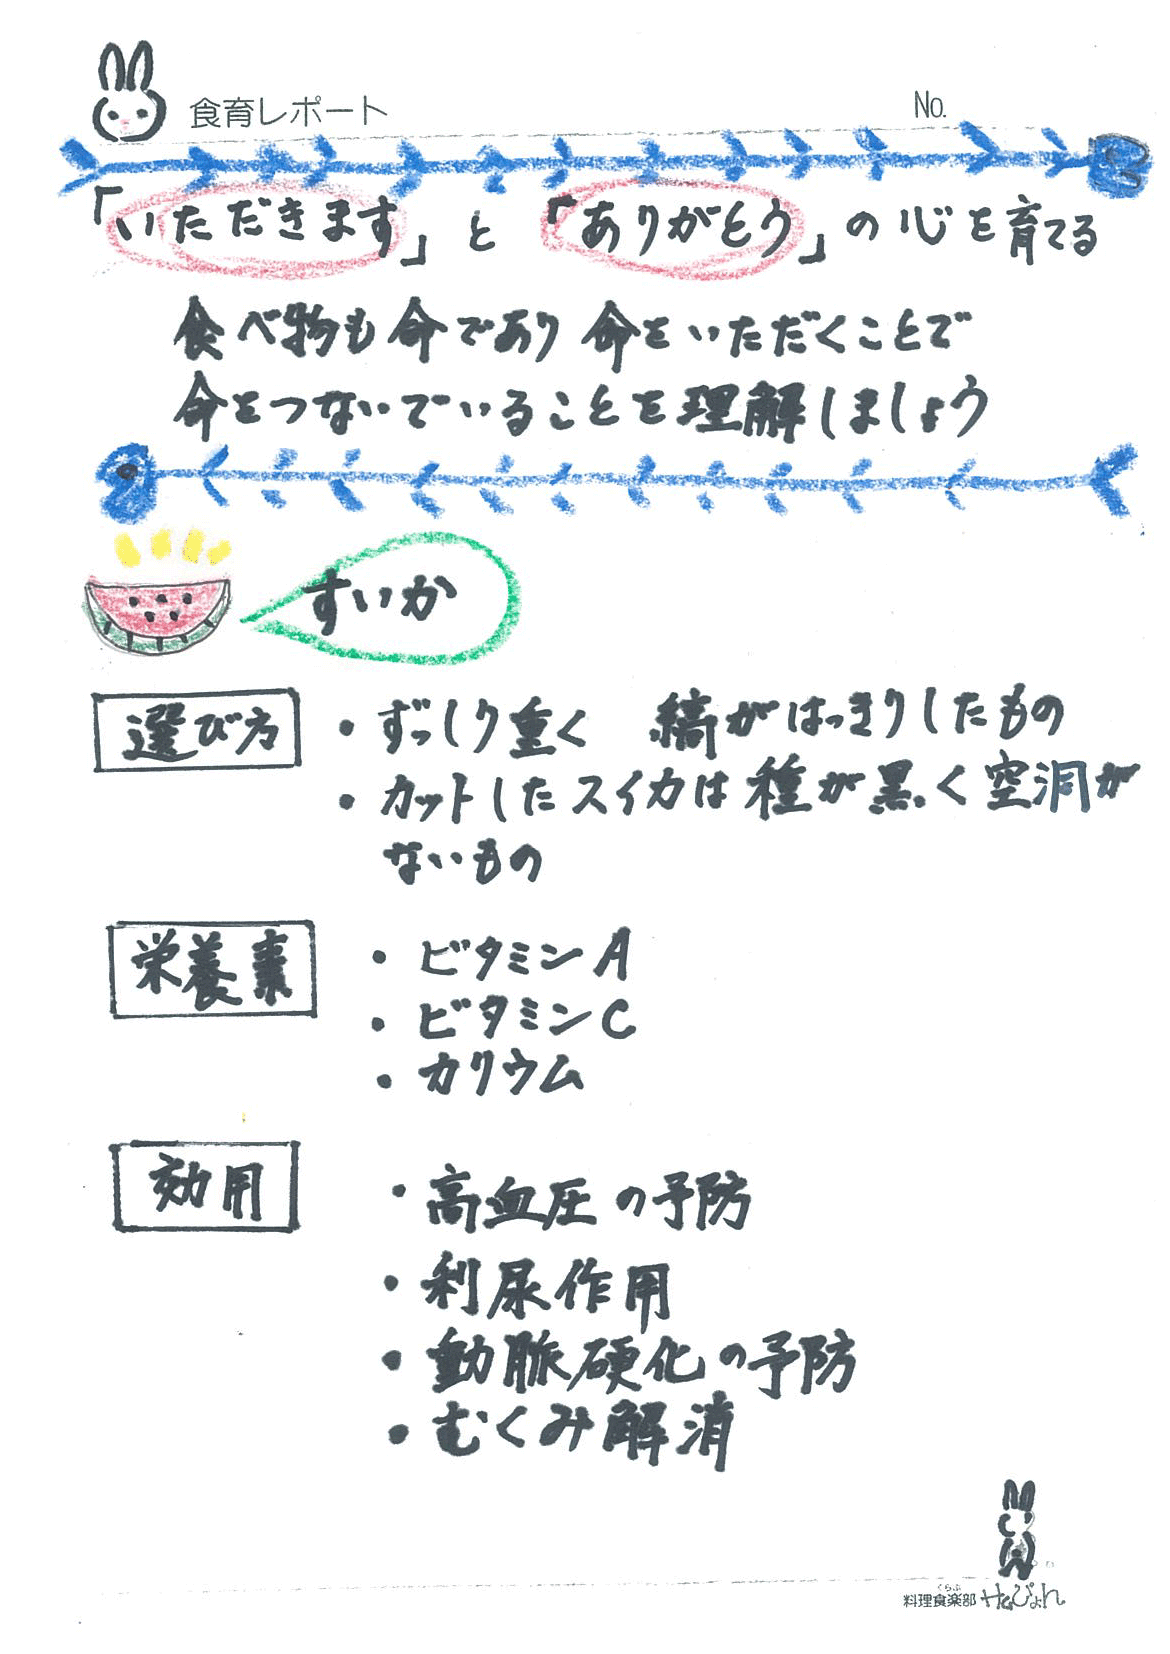 食育レポート
No.
「いただきます」と「ありがとう」の心を育てる
食べ物も命であり 命をいただくことで
命をつないでいることを理解しましょう
すいか
選び方
・ずっしり重く 縞がはっきりしたもの
・カットしたスイカは種が黒く空洞が
ないもの
栄養素
・ビタミンA
・ビタミンC
・カリウム
効用
・高血圧の予防
・利尿作用
・動脈硬化の予防
・むくみ解消
くらぶ
料理食楽部